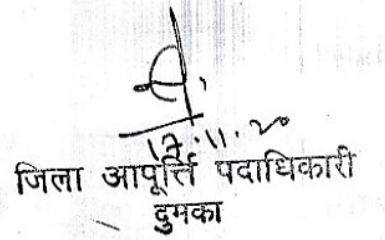 17.11.20
जिला आपूर्त्ति पदाधिकारी
दुमका